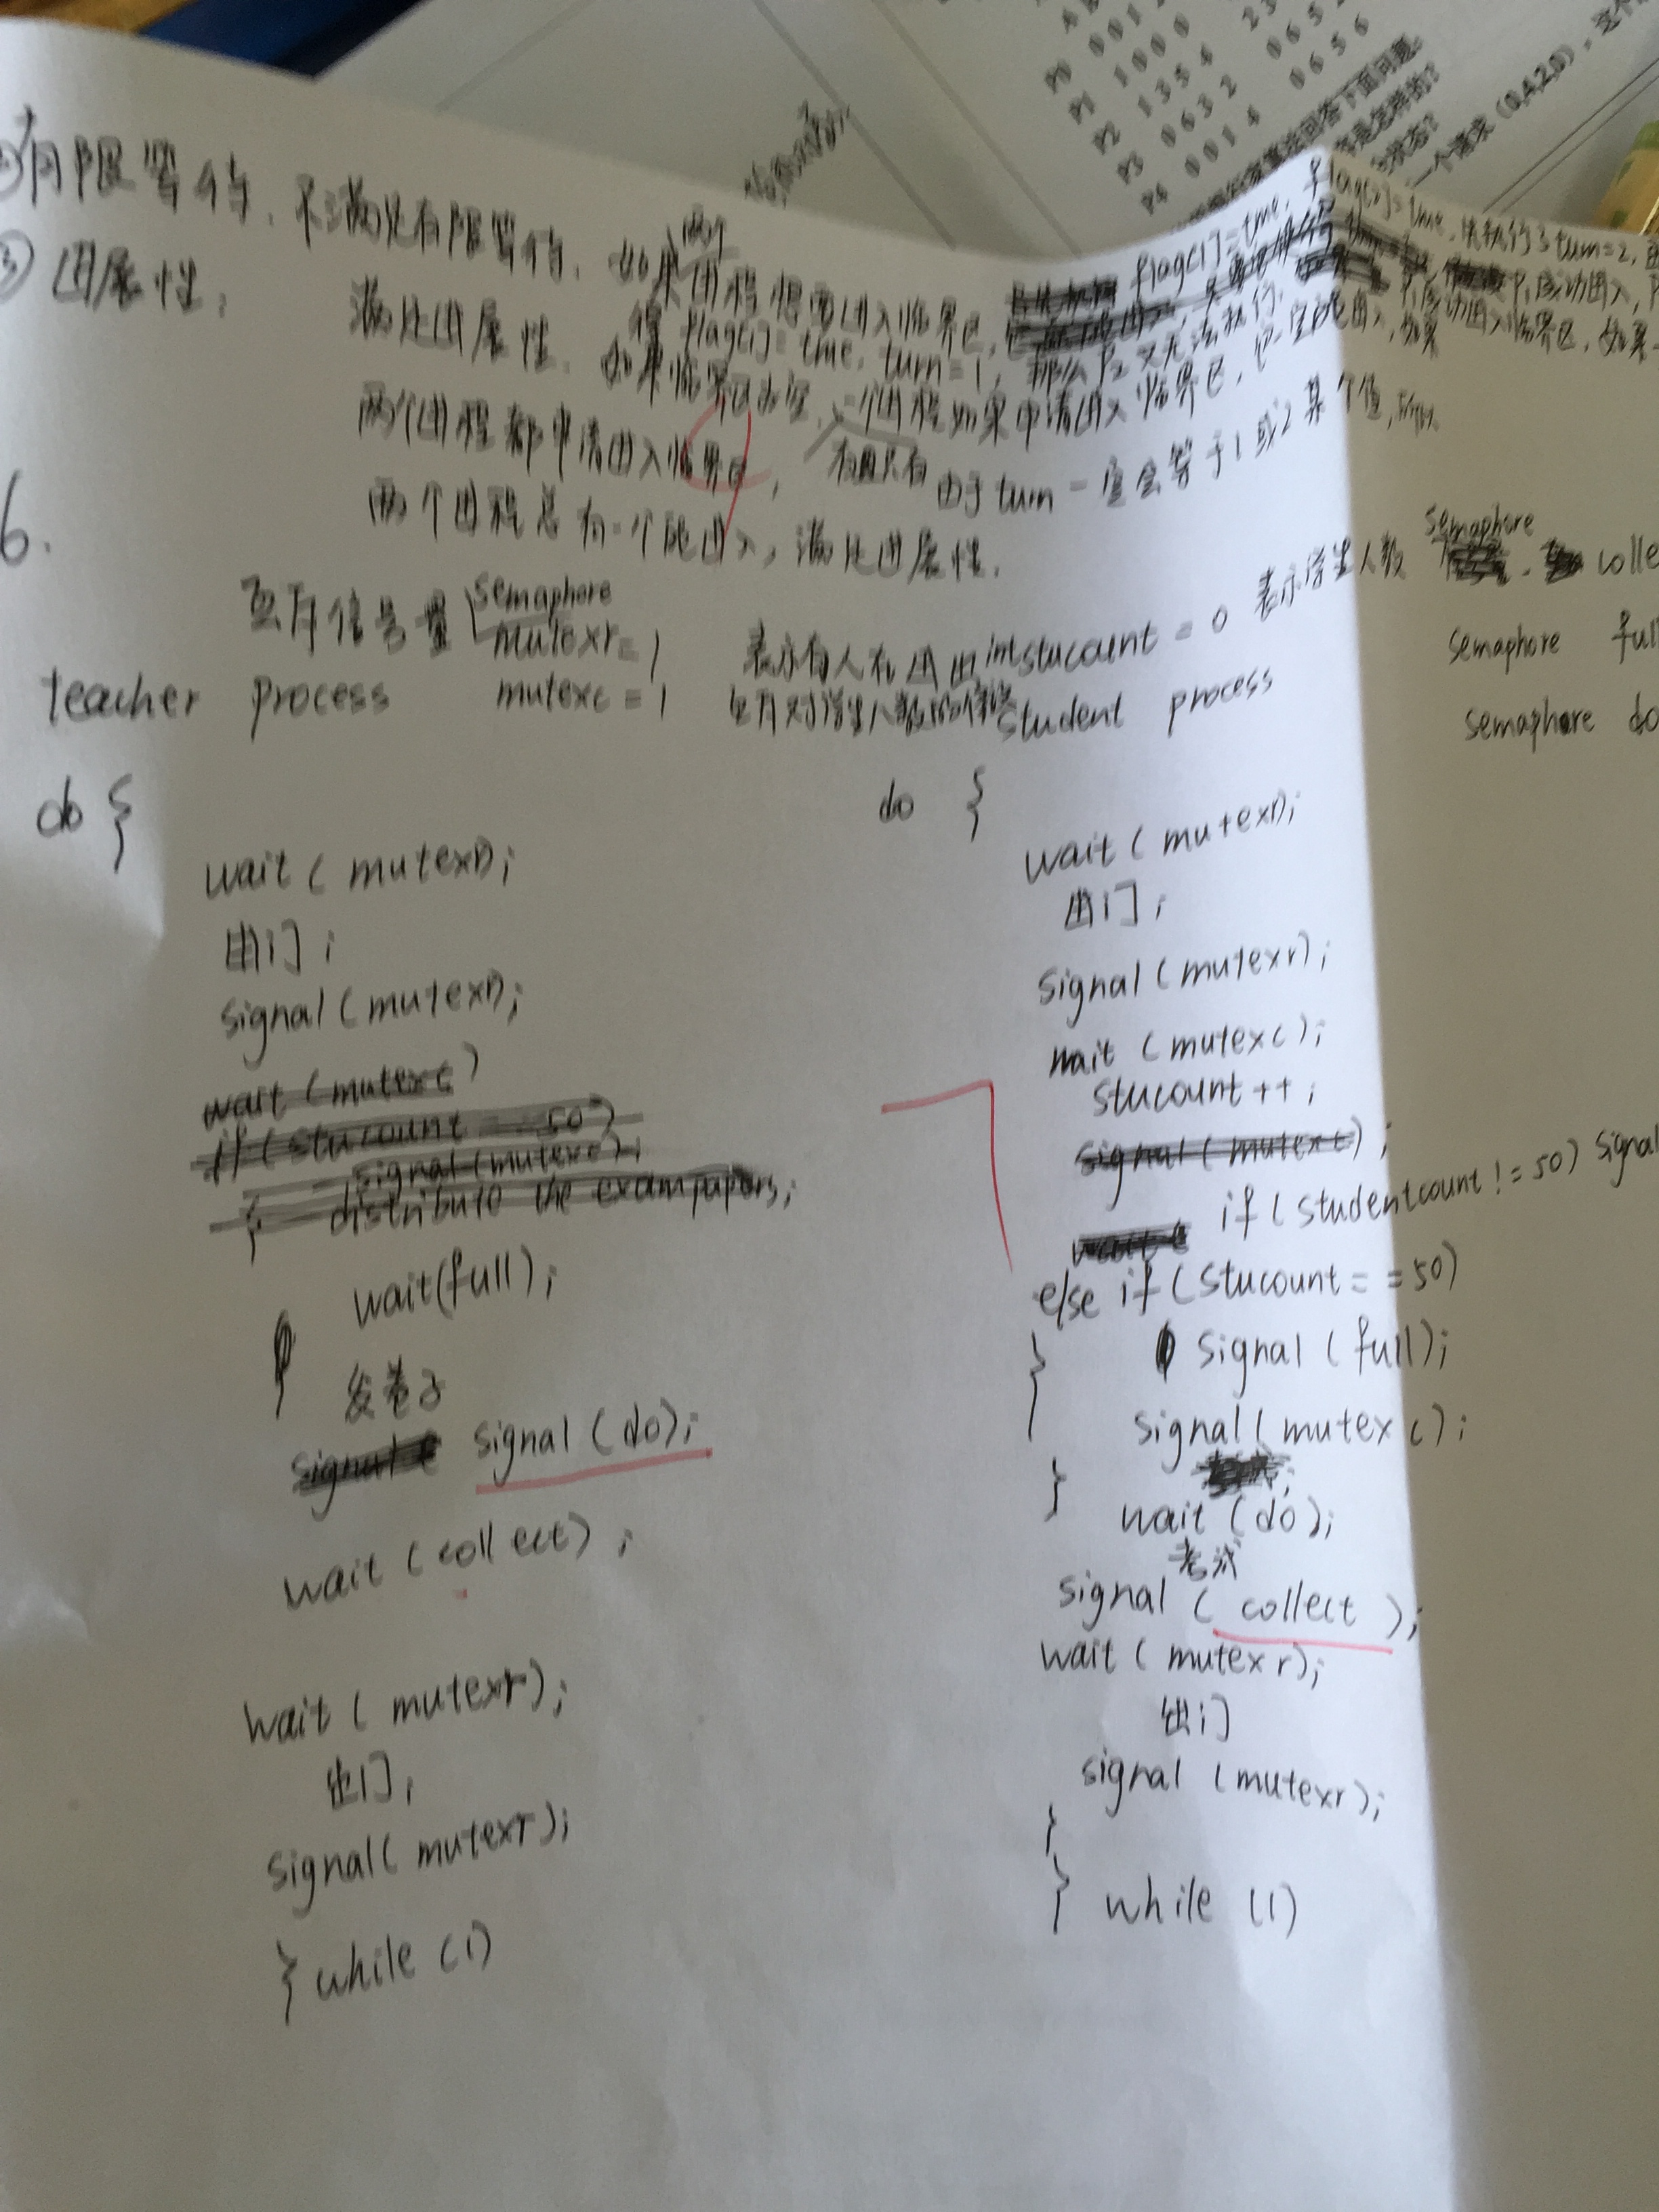 A B
P0 001
P1 1000
P2 1354
P3 0632
P4 0014
065
0656
回答下面问题。
是怎样的?
状态?
一个请求 (0,4,2,0),这个
有限等待. 不满足有限等待. 如果两个进程想要进入临界区, flag[1]=true, flag[2]=true, 先执行了turn=2,
flag[1]=true, turn=1, 那么P2又无法执行.
③ 进展性: 满足进展性. 如果临界区为空, 一个进程如果申请进入临界区, 它一定能进入, 如果
两个进程都申请进入临界区, 有且只有 由于turn一定会等于1或2某个值, 所以
两个进程总有一个能进入, 满足进展性.
6.
互斥信号量 semaphore mutexr=1 表示有人在进出 int stucount = 0 表示学生人数 semaphore colle
mutexc=1 互斥对学生人数的修改 semaphore full
teacher process student process semaphore do
do {
wait ( mutexr);
进门;
signal ( mutexr);
wait (mutexc)
if ( stucount == 50)
signal (mutexc);
{ distribute the exam papers;
wait(full);
发卷子
signal (do);
wait ( collect) ;
wait ( mutexr);
出门;
signal( mutexr);
} while (1)
do {
wait ( mutexr);
进门;
signal ( mutexr);
wait ( mutexc);
stucount ++ ;
signal ( mutexc) ;
if ( studentcount != 50) signal
else if ( stucount = = 50)
signal ( full);
}
signal( mutexc);
}
wait (do);
考试
signal ( collect );
wait ( mutexr);
出门
signal ( mutexr);
}
} while (1)